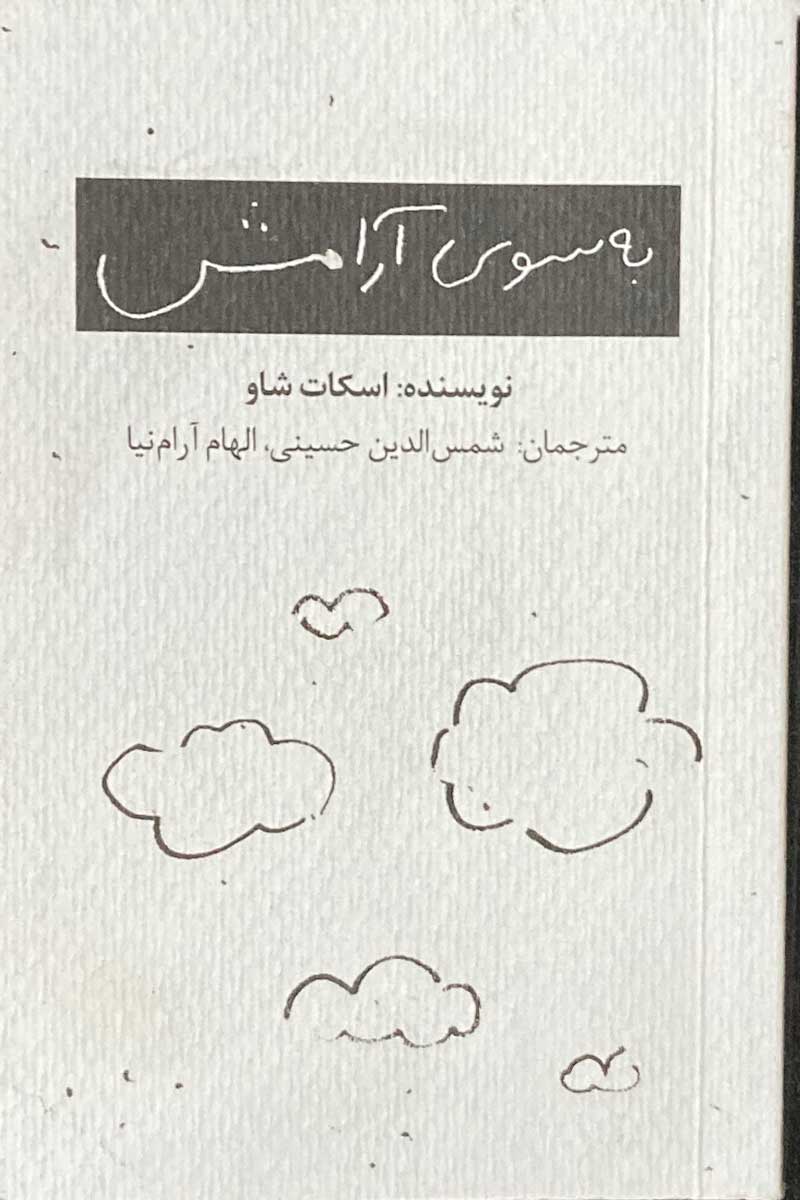 به سوی آرامش
نویسنده: اسکات شاو
مترجمان: شمس‌الدین حسینی، الهام آرام‌نیا